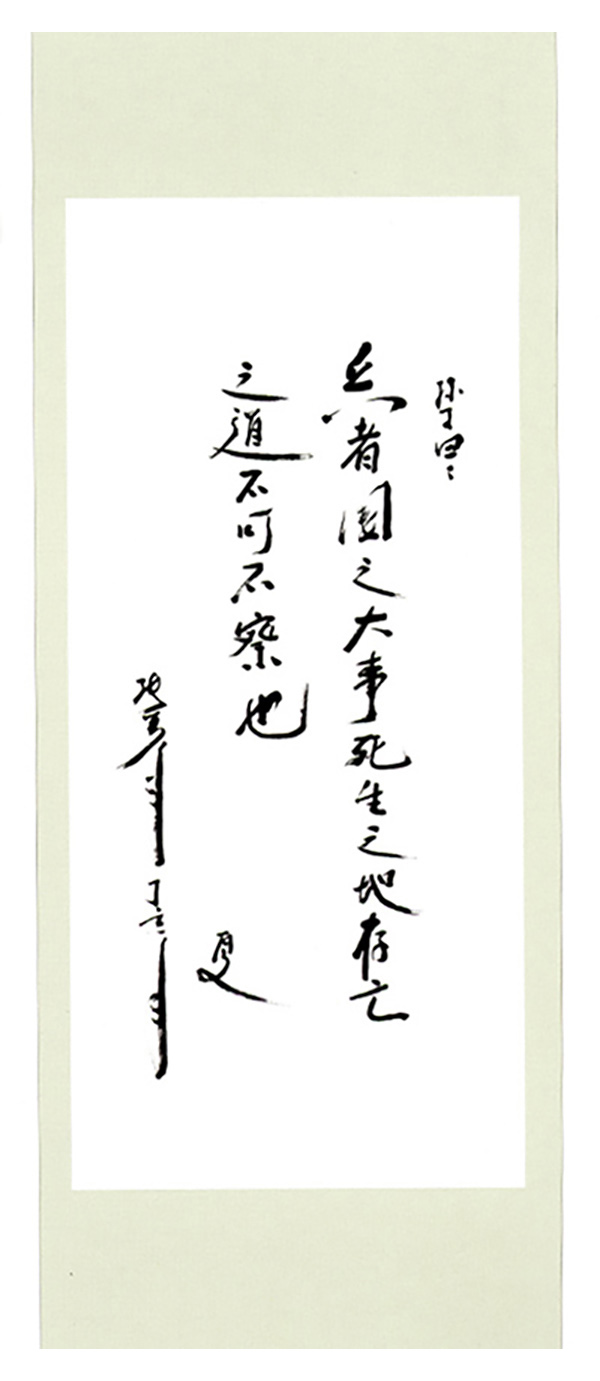 孙子曰：
兵者國之大事死生之地存亡
之道不可不察也
丁亥年
夏